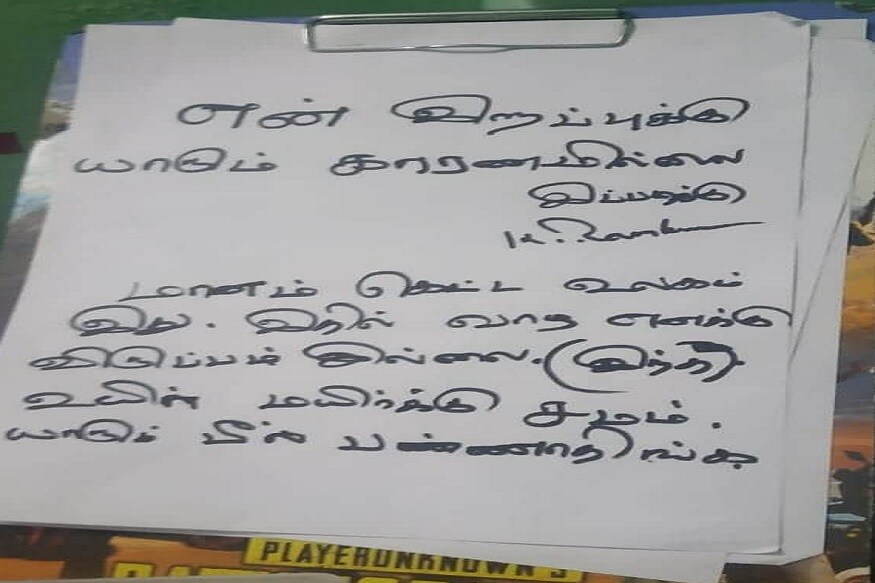 என் இறப்புக்கு
யாரும் காரணமில்லை
இப்படிக்கு
மானம் கெட்ட உலகம்
இது. இதில் வாழ எனக்கு
விருப்பம் இல்லை. (இந்த)
உயிர் மயிர்க்கு சமம்.
யாரும் பீல் பண்ணாதிங்க
PLAYERUNKNOWN'S